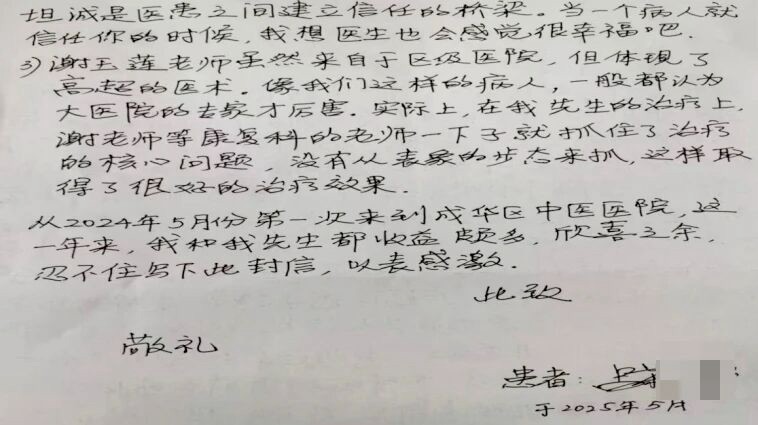 坦诚是医患之间建立信任的桥梁。当一个病人就
信任你的时候，我想医生也会感觉很幸福吧.
3)谢玉莲老师虽然来自于区级医院，但体现了
高超的医术。像我们这样的病人，一般都认为
大医院的专家才厉害。实际上，在我先生的治疗上，
谢老师等康复科的老师一下子就抓住了治疗
的核心问题，没有从表象的步态来抓，这样取
得了很好的治疗效果.
从2024年5月份第一次来到成华区中医医院，这
一年来，我和我先生都收益颇多，欣喜之余，
忍不住写下此封信，以表感激.
此致
敬礼
患者：
于2025年5月